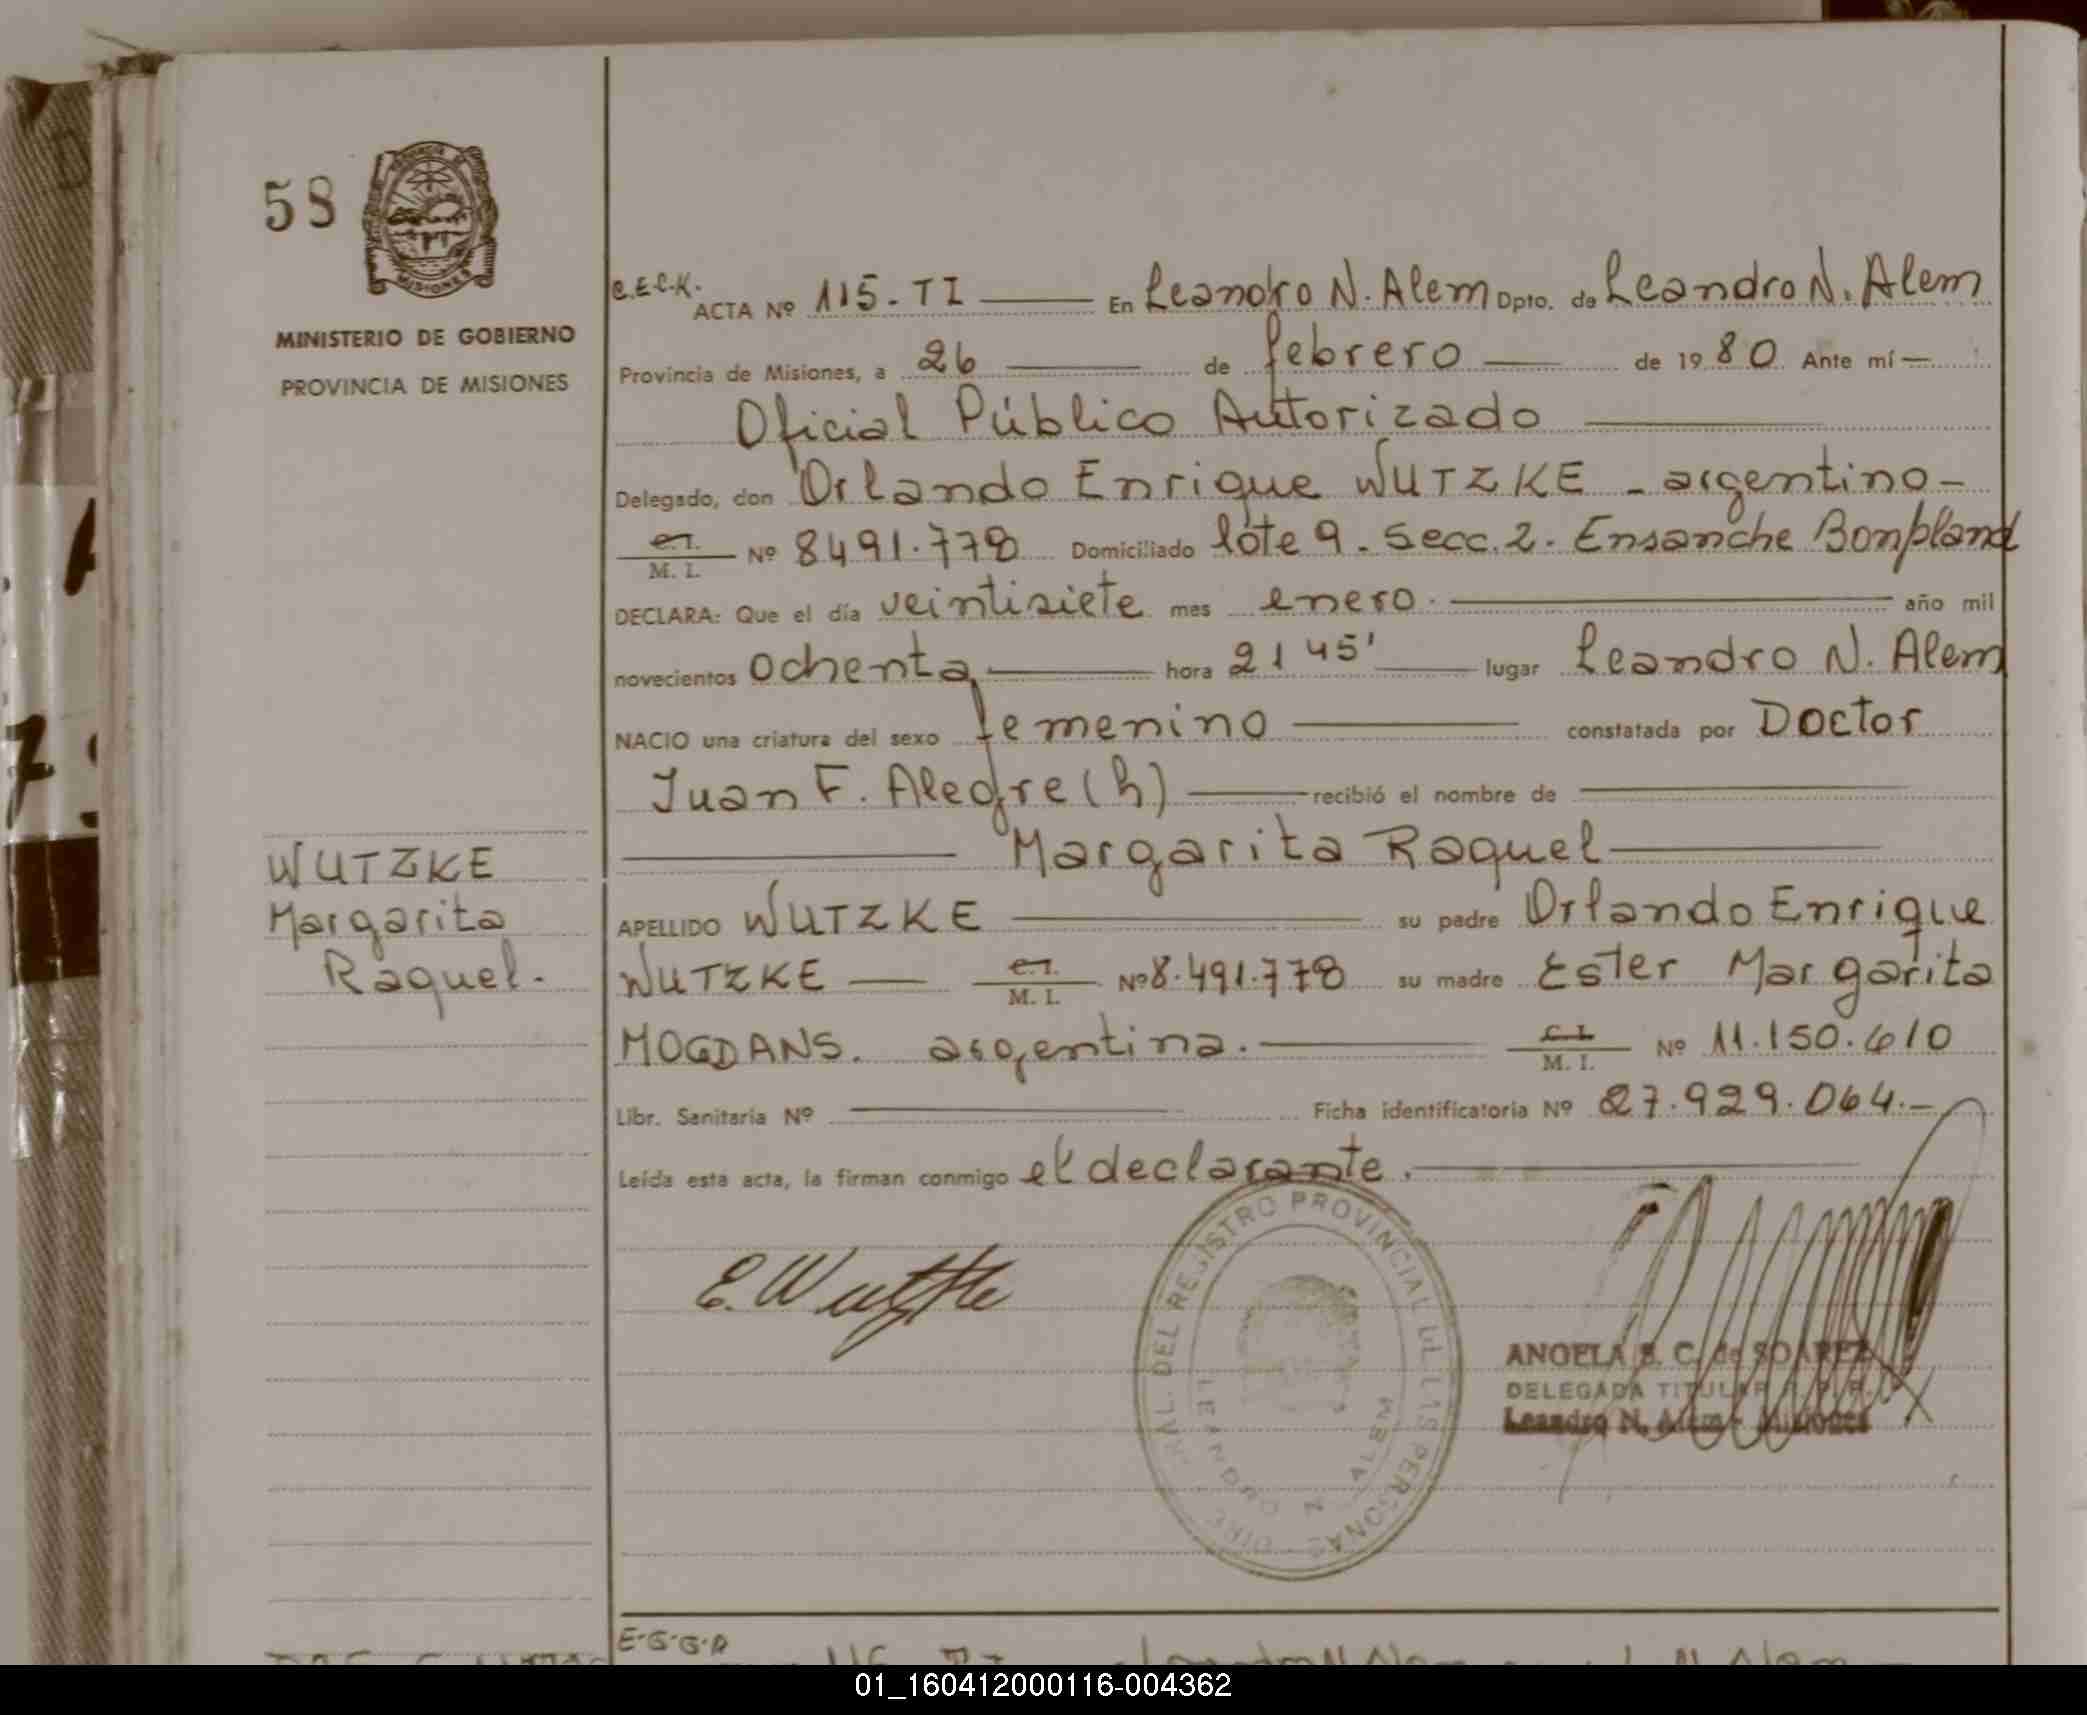 58
MINISTERIO DE GOBIERNO
PROVINCIA DE MISIONES
C.E.C.K.
ACTA Nº 115-TI En Leandro N. Alem Dpto. de Leandro N. Alem
Provincia de Misiones, a 26 de febrero de 1980 Ante mí
Oficial Público Autorizado
Delegado, don Orlando Enrique WUTZKE - argentino -
C.I. M. I. Nº 8491.778 Domiciliado lote 9. Secc. 2. Ensanche Bonpland
DECLARA: Que el día veintisiete mes enero. año mil
novecientos ochenta hora 21 45' lugar Leandro N. Alem
NACIO una criatura del sexo femenino constatada por Doctor
Juan F. Alegre (h) recibió el nombre de
Margarita Raquel
APELLIDO WUTZKE su padre Orlando Enrique
WUTZKE C.I. M. I. Nº 8.491.778 su madre Ester Margarita
MOGDANS. argentina. C.I. M. I. Nº 11.150.610
Libr. Sanitaria Nº Ficha identificatoria Nº 27.929.064.-
Leída esta acta, la firman conmigo el declarante.
WUTZKE
Margarita
Raquel.
E. Wutzke
DEL REGISTRO PROVINCIAL DE LAS PERSONAS
LEANDRO N. ALEM
ANGELA S. C. de SOAREZ
DELEGADA TITULAR R. P. P.
Leandro N. Alem - Misiones
E-G-G-A
01_160412000116-004362